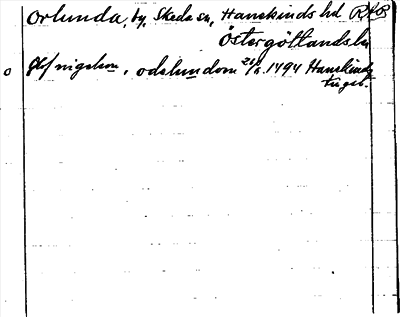 Orlunda, by, Skeda sn, Hanekinds hd
Östergötlands län
o Olof nigelson, odelundom 1494 Hanekinds
tingst.